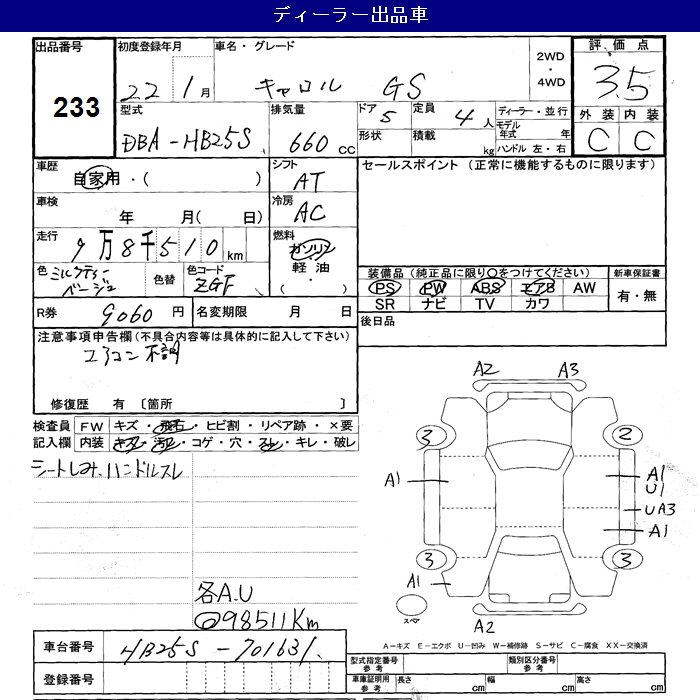 ディーラー出品車
出品番号 初度登録年月 車名・グレード 2WD・4WD 評価点
233 22 1月 キャロル GS 3.5
型式 排気量 ドア 定員 ディーラー・並行 外装 内装
DBA-HB25S 660cc 5 4人 モデル年式 年 C C
形状 積載 kg ハンドル 左・右
車歴 シフト セールスポイント (正常に機能するものに限ります)
自家用・( ) AT
車検 冷房
年 月( 日) AC
走行 燃料
9万8千510km ガソリン
軽油・
色 ミルクティーベージュ 色替 色コード ZGF
装備品(純正品に限り○をつけてください) 新車保証書
PS PW ABS エアB AW 有・無
SR ナビ TV カワ
R券 9060円 名変期限 月 日 後日品
注意事項申告欄(不具合内容等は具体的に記入して下さい)
エアコン不調
修復歴 有〔箇所 〕
検査員 FW キズ・飛石・ヒビ割・リペア跡・×要
記入欄 内装 キズ・汚レ・コゲ・穴・スレ・キレ・破レ
シートしみ、ハンドルスレ
A2 A3
3 2
A1 A1
U1
UA3
A1
3 3
A1
スペア
A2
各A.U
98511Km
車台番号 HB25S-701631
登録番号
A-キズ E-エクボ U-凹み W-補修跡 S-サビ C-腐食 XX-交換済
型式指定番号 参考 類別区分番号 参考
車庫証明用 参考 長さ cm 幅 cm 高さ cm